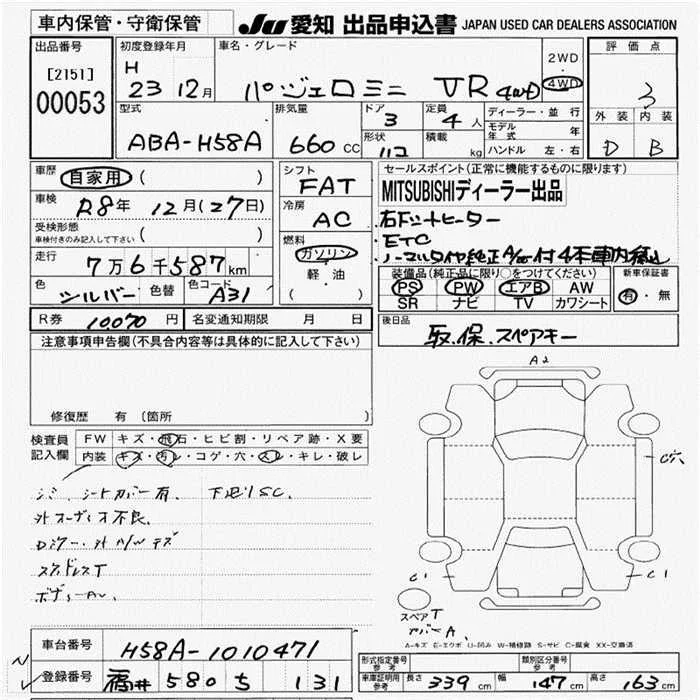 車内保管・守衛保管
JU 愛知 出品申込書 JAPAN USED CAR DEALERS ASSOCIATION
出品番号 初度登録年月 車名・グレード 2WD 評価点
[2151] H ・
00053 23 12月 パジェロミニ VR 4WD 4WD 3
型式 排気量 ドア 定員 ディーラー・並行 外装 内装
ABA-H58A 660 CC 3 4人 モデル年式 年
形状 積載 kg ハンドル 左・右 D B
車歴 自家用 ( ) シフト セールスポイント(正常に機能するものに限ります)
車検 R8年 12月(27日) FAT MITSUBISHIディーラー出品
受検形態 冷房 右下シートヒーター
車検付きのみ記入して下さい ( ) AC ETC
走行 7万6千587km 燃料 ノーマルタイヤ純正A/W付4本車内積込
色 シルバー 色替 色コード A31 ガソリン 装備品(純正品に限り○をつけてください) 新車保証書
軽・油 PS PW エアB AW 有・無
( ) SR ナビ TV カワシート
R券 10,070円 名変通知期限 月 日 後日品
注意事項申告欄(不具合内容等は具体的に記入して下さい) 取.保.スペアキー
A2
修復歴 有(箇所 )
検査員 FW キズ・飛石・ヒビ割・リペア跡・X要
記入欄 内装 キズ・汚レ・コゲ・穴・スレ・キレ・破レ
シミ、シートカバー有、下廻りSC.
外オーディオ不良.
Dミラー.外A/Wキズ
スタッドレスT
C1 C1
スペアT
カバーA.
A-キズ E-エクボ U-凹み W-補修跡 S-サビ C-腐食 XX-交換済
車台番号 H58A-1010471
登録番号 福井 580 ち 131
型式指定番号 参考 類別区分番号 参考
車庫証明用 参考 長さ 339cm 幅 147cm 高さ 163cm